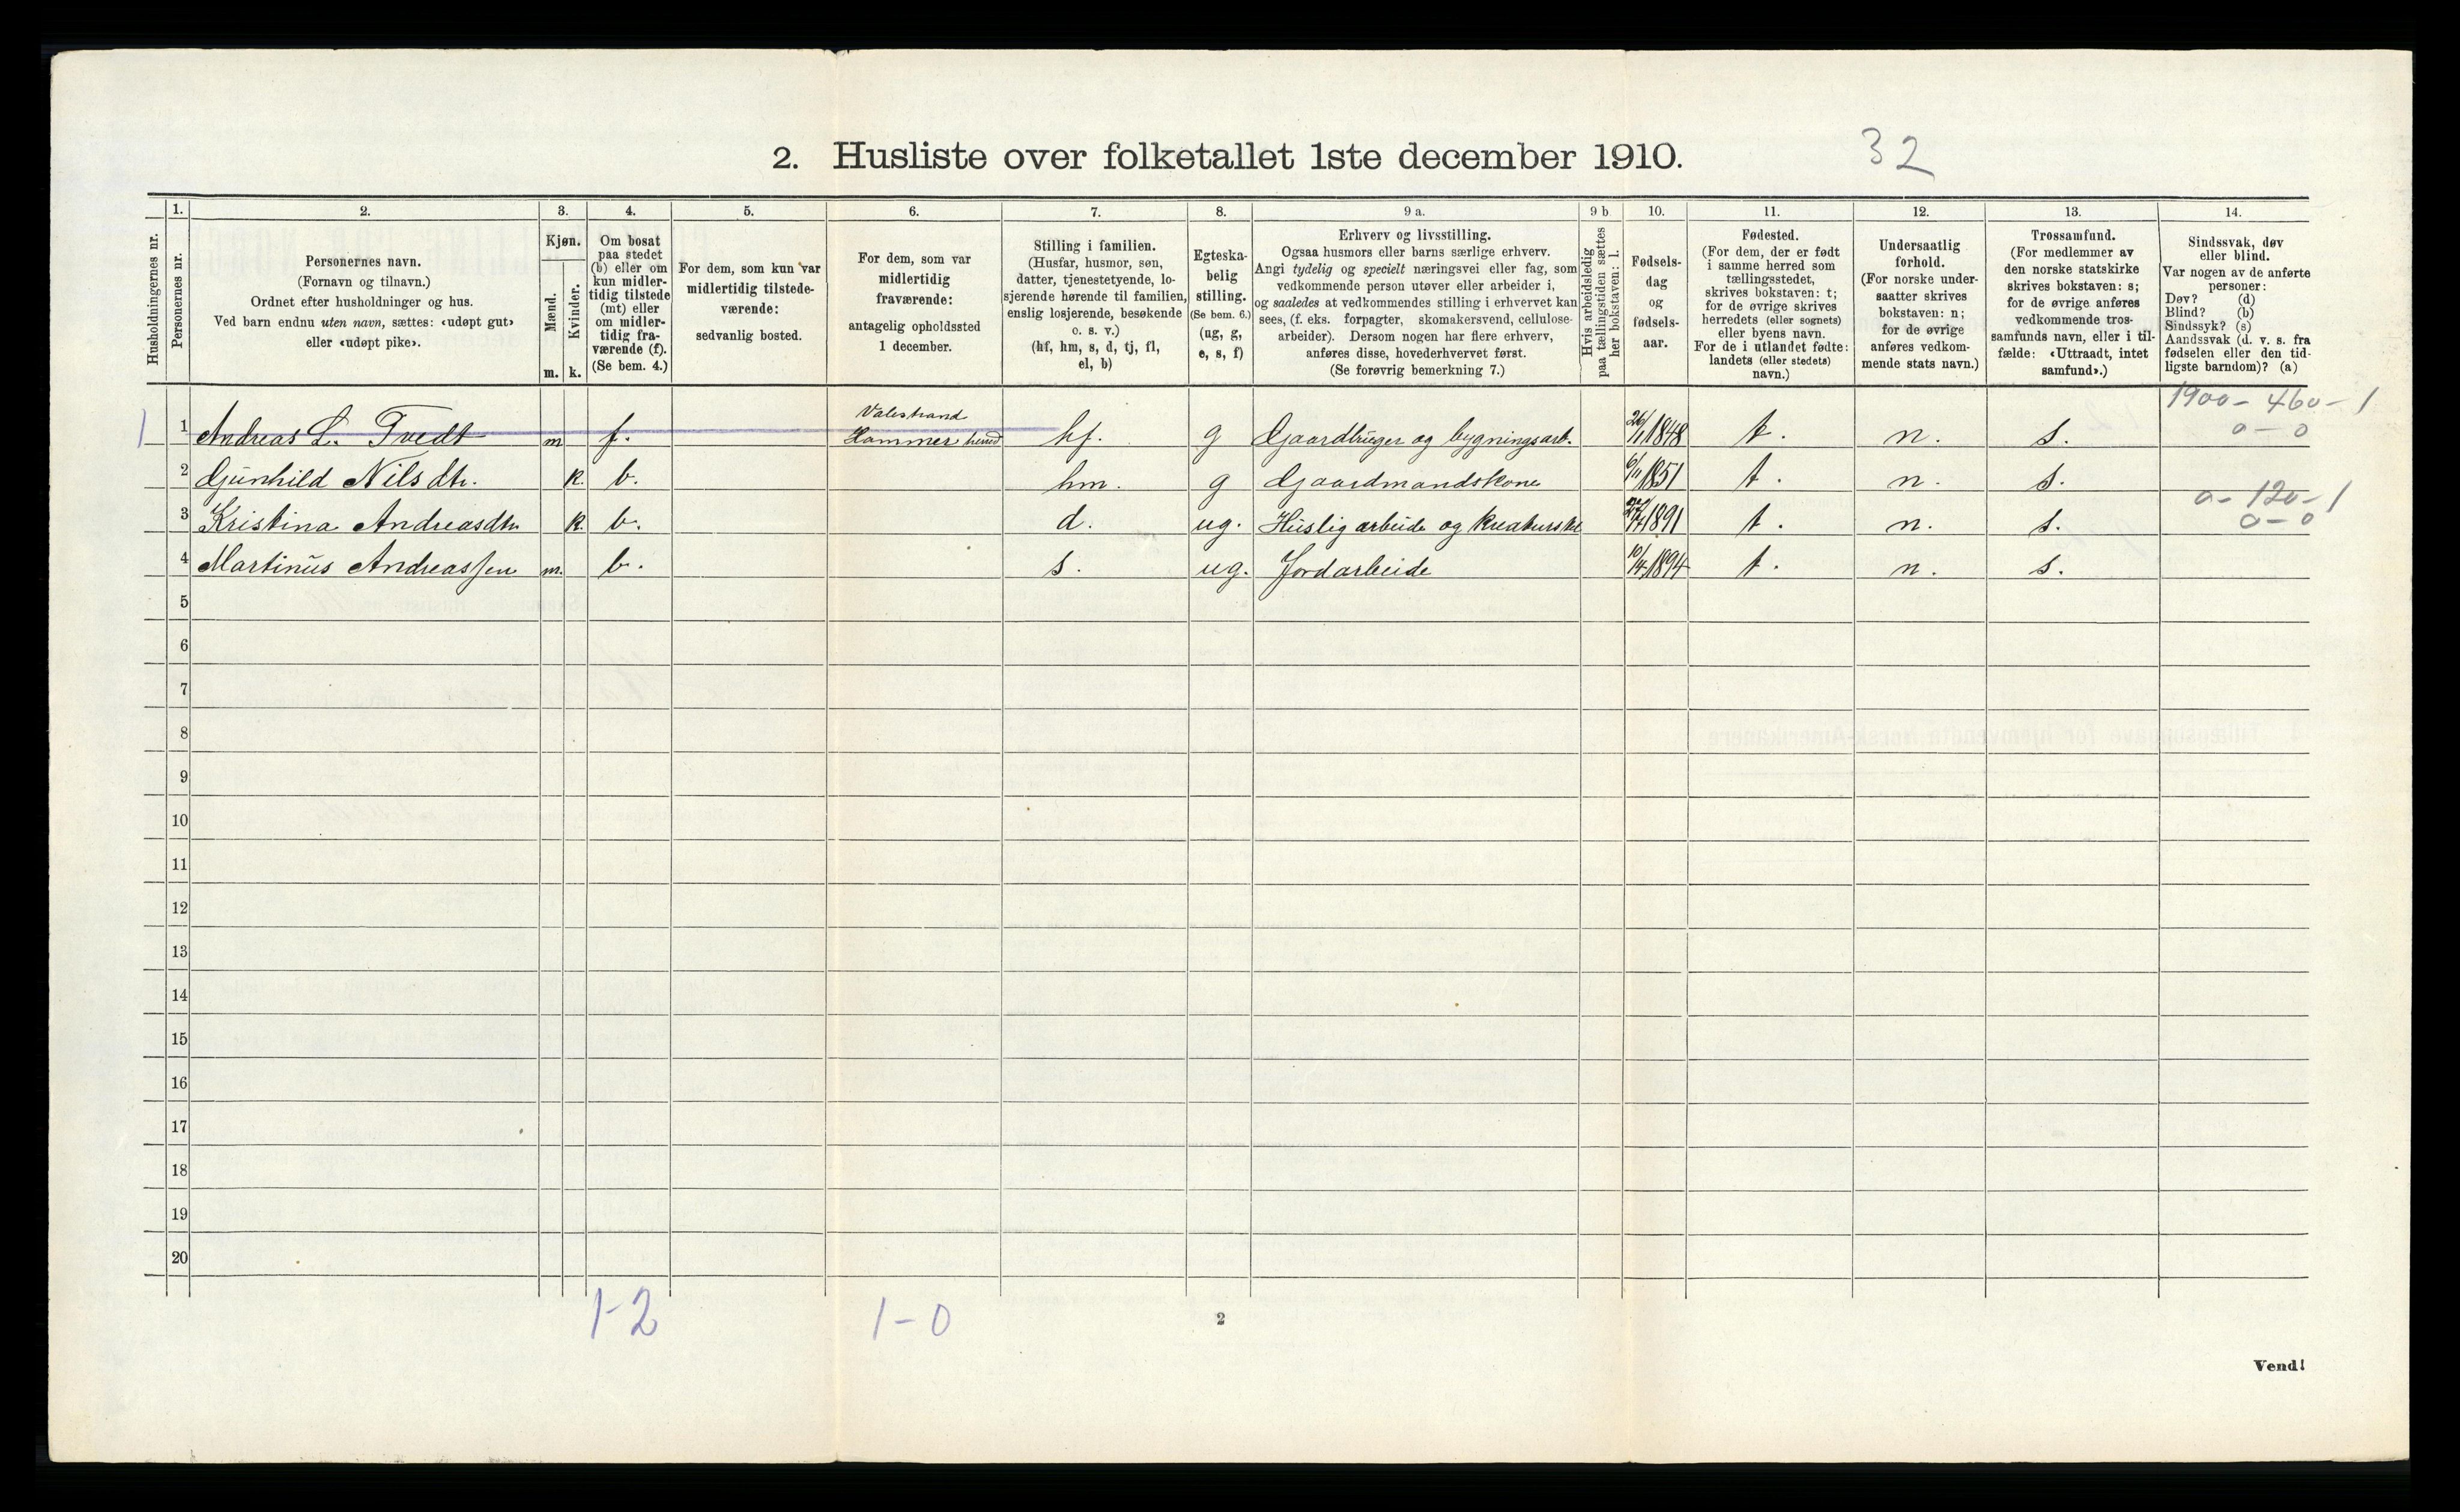 2. Husliste over folketallet 1ste december 1910.
32
Husholdningernes nr.
1.
Personernes nr.
2.
Personernes navn.
(Fornavn og tilnavn.)
Ordnet efter husholdninger og hus.
Ved barn endnu uten navn, sættes: «udøpt gut»
eller «udøpt pike».
3.
Kjøn.
Mænd.
Kvinder.
m. k.
4.
Om bosat
paa stedet
(b) eller om
kun midler-
tidig tilstede
(mt) eller
om midler-
tidig fra-
værende (f).
(Se bem. 4.)
5.
For dem, som kun var
midlertidig tilstede-
værende:
sedvanlig bosted.
6.
For dem, som var
midlertidig
fraværende:
antagelig opholdssted
1 december.
7.
Stilling i familien.
(Husfar, husmor, søn,
datter, tjenestetyende, lo-
sjerende hørende til familien,
enslig losjerende, besøkende
o. s. v.)
(hf, hm, s, d, tj, fl,
el, b)
8.
Egteska-
belig
stilling.
(Se bem. 6.)
(ug, g,
e, s, f)
9 a.
Erhverv og livsstilling.
Ogsaa husmors eller barns særlige erhverv.
Angi tydelig og specielt næringsvei eller fag, som
vedkommende person utøver eller arbeider i,
og saaledes at vedkommendes stilling i erhvervet kan
sees, (f. eks. forpagter, skomakersvend, cellulose-
arbeider). Dersom nogen har flere erhverv,
anføres disse, hovederhvervet først.
(Se forøvrig bemerkning 7.)
9 b.
Hvis arbeidsledig
paa tællingstiden sættes
her bokstaven: l.
10.
Fødsels-
dag
og
fødsels-
aar.
11.
Fødested.
(For dem, der er født
i samme herred som
tællingsstedet,
skrives bokstaven: t;
for de øvrige skrives
herredets (eller sognets)
eller byens navn.
For de i utlandet fødte:
landets (eller stedets)
navn.)
12.
Undersaatlig
forhold.
(For norske under-
saatter skrives
bokstaven: n;
for de øvrige
anføres vedkom-
mende stats navn.)
13.
Trossamfund.
(For medlemmer av
den norske statskirke
skrives bokstaven: s;
for de øvrige anføres
vedkommende tros-
samfunds navn, eller i til-
fælde: «Uttraadt, intet
samfund».)
14.
Sindssvak, døv
eller blind.
Var nogen av de anførte
personer:
Døv? (d)
Blind? (b)
Sindssyk? (s)
Aandssvak (d. v. s. fra
fødselen eller den tid-
ligste barndom)? (a)
1900 - 460 - 1
0 - 0
1 1 Andreas L. Tvedt m f. Valestrand Hammer herred hf. g Gaardbruger og bygningsarb. 26/1 1848 t. n. s.
2 Gunhild Nilsdtr. k. b. hm. g Gaardmandskone 6/11 1851 t. n. s.
0 - 120 - 1
0 - 0
3 Kristina Andreasdtr k. b. d. ug. Huslig arbeide og kreaturstel 1891 t. n. s.
4 Martinus Andreassen m. b. s. ug. Jordarbeide 10/4 1894 t. n. s.
5
6
7
8
9
10
11
12
13
14
15
16
17
18
19
20
1-2
1-0
2
Vend!